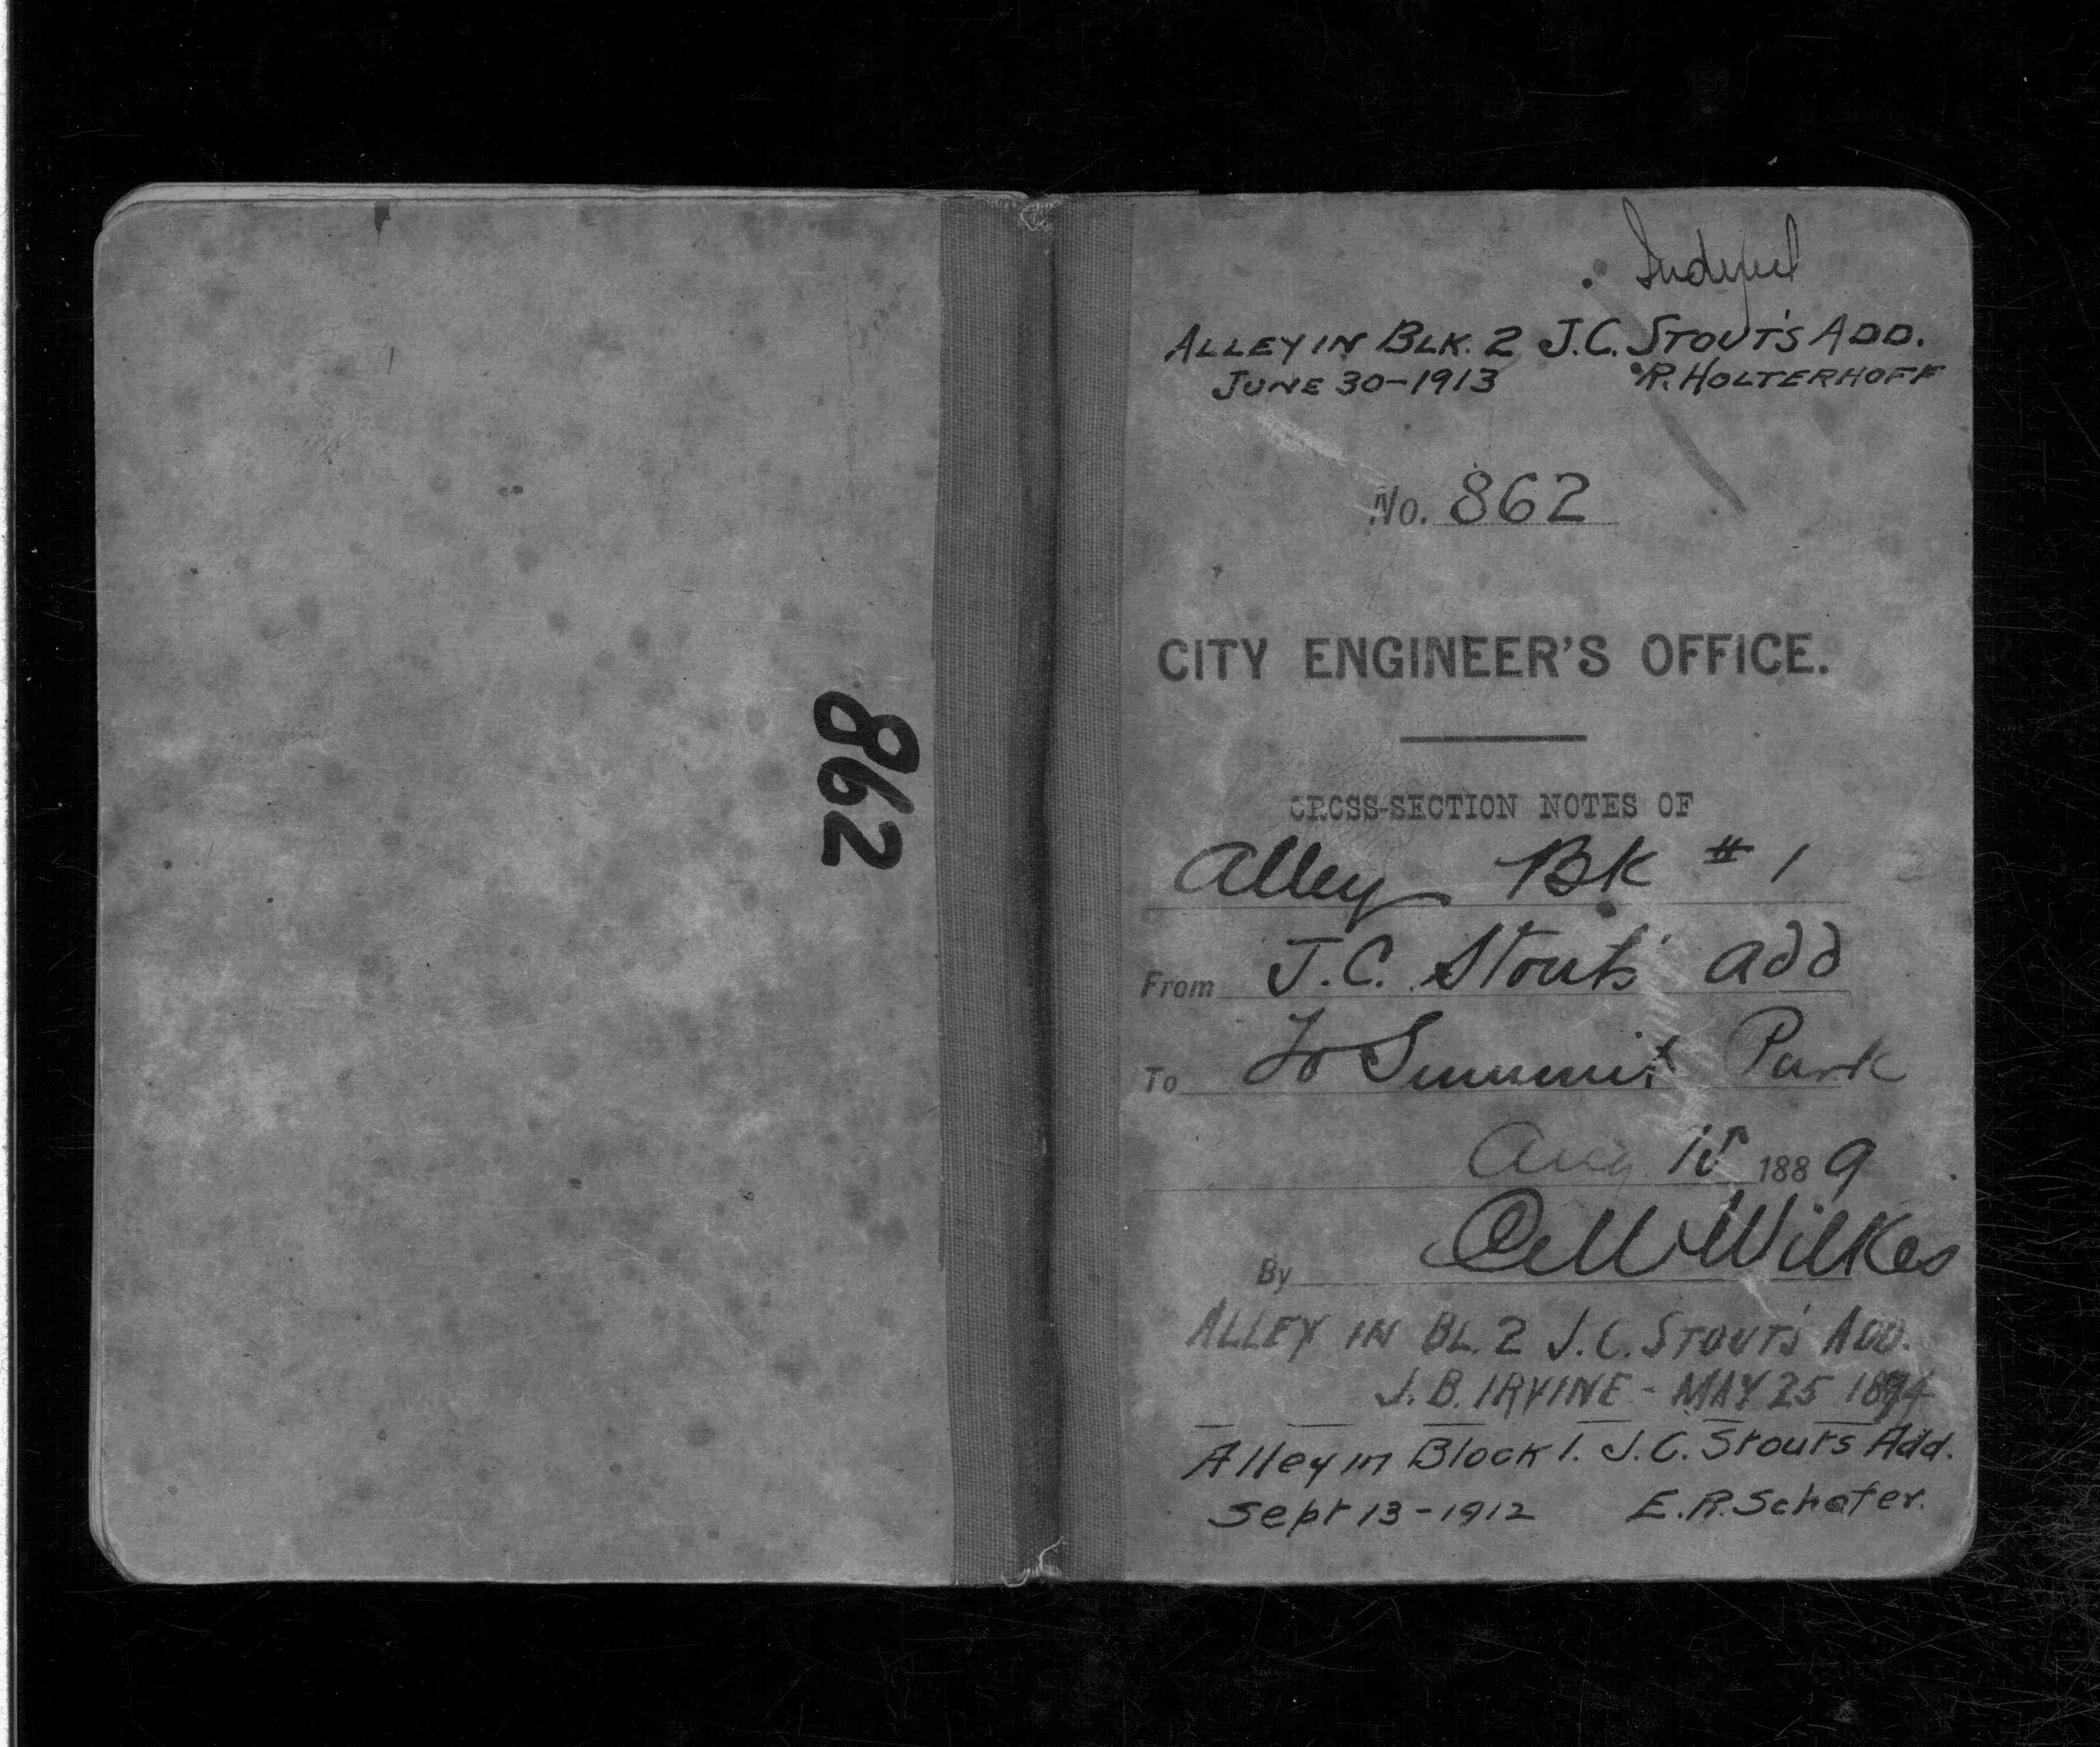 862
Indexed
ALLEY IN BLK. 2 J.C. STOUT'S ADD.
JUNE 30-1913 R. HOLTERHOFF
No. 862
CITY ENGINEER'S OFFICE.
CROSS-SECTION NOTES OF
Alley Bk # 1
From J.C. Stouts' add
To To Summit Park
Aug 15 1889
By Wilkes
ALLEY IN BL. 2 J.C. STOUT'S ADD.
J.B. IRVINE - MAY 25 1894
Alley in Block 1. J.C. Stouts Add.
Sept 13-1912 E.R. Schafer.